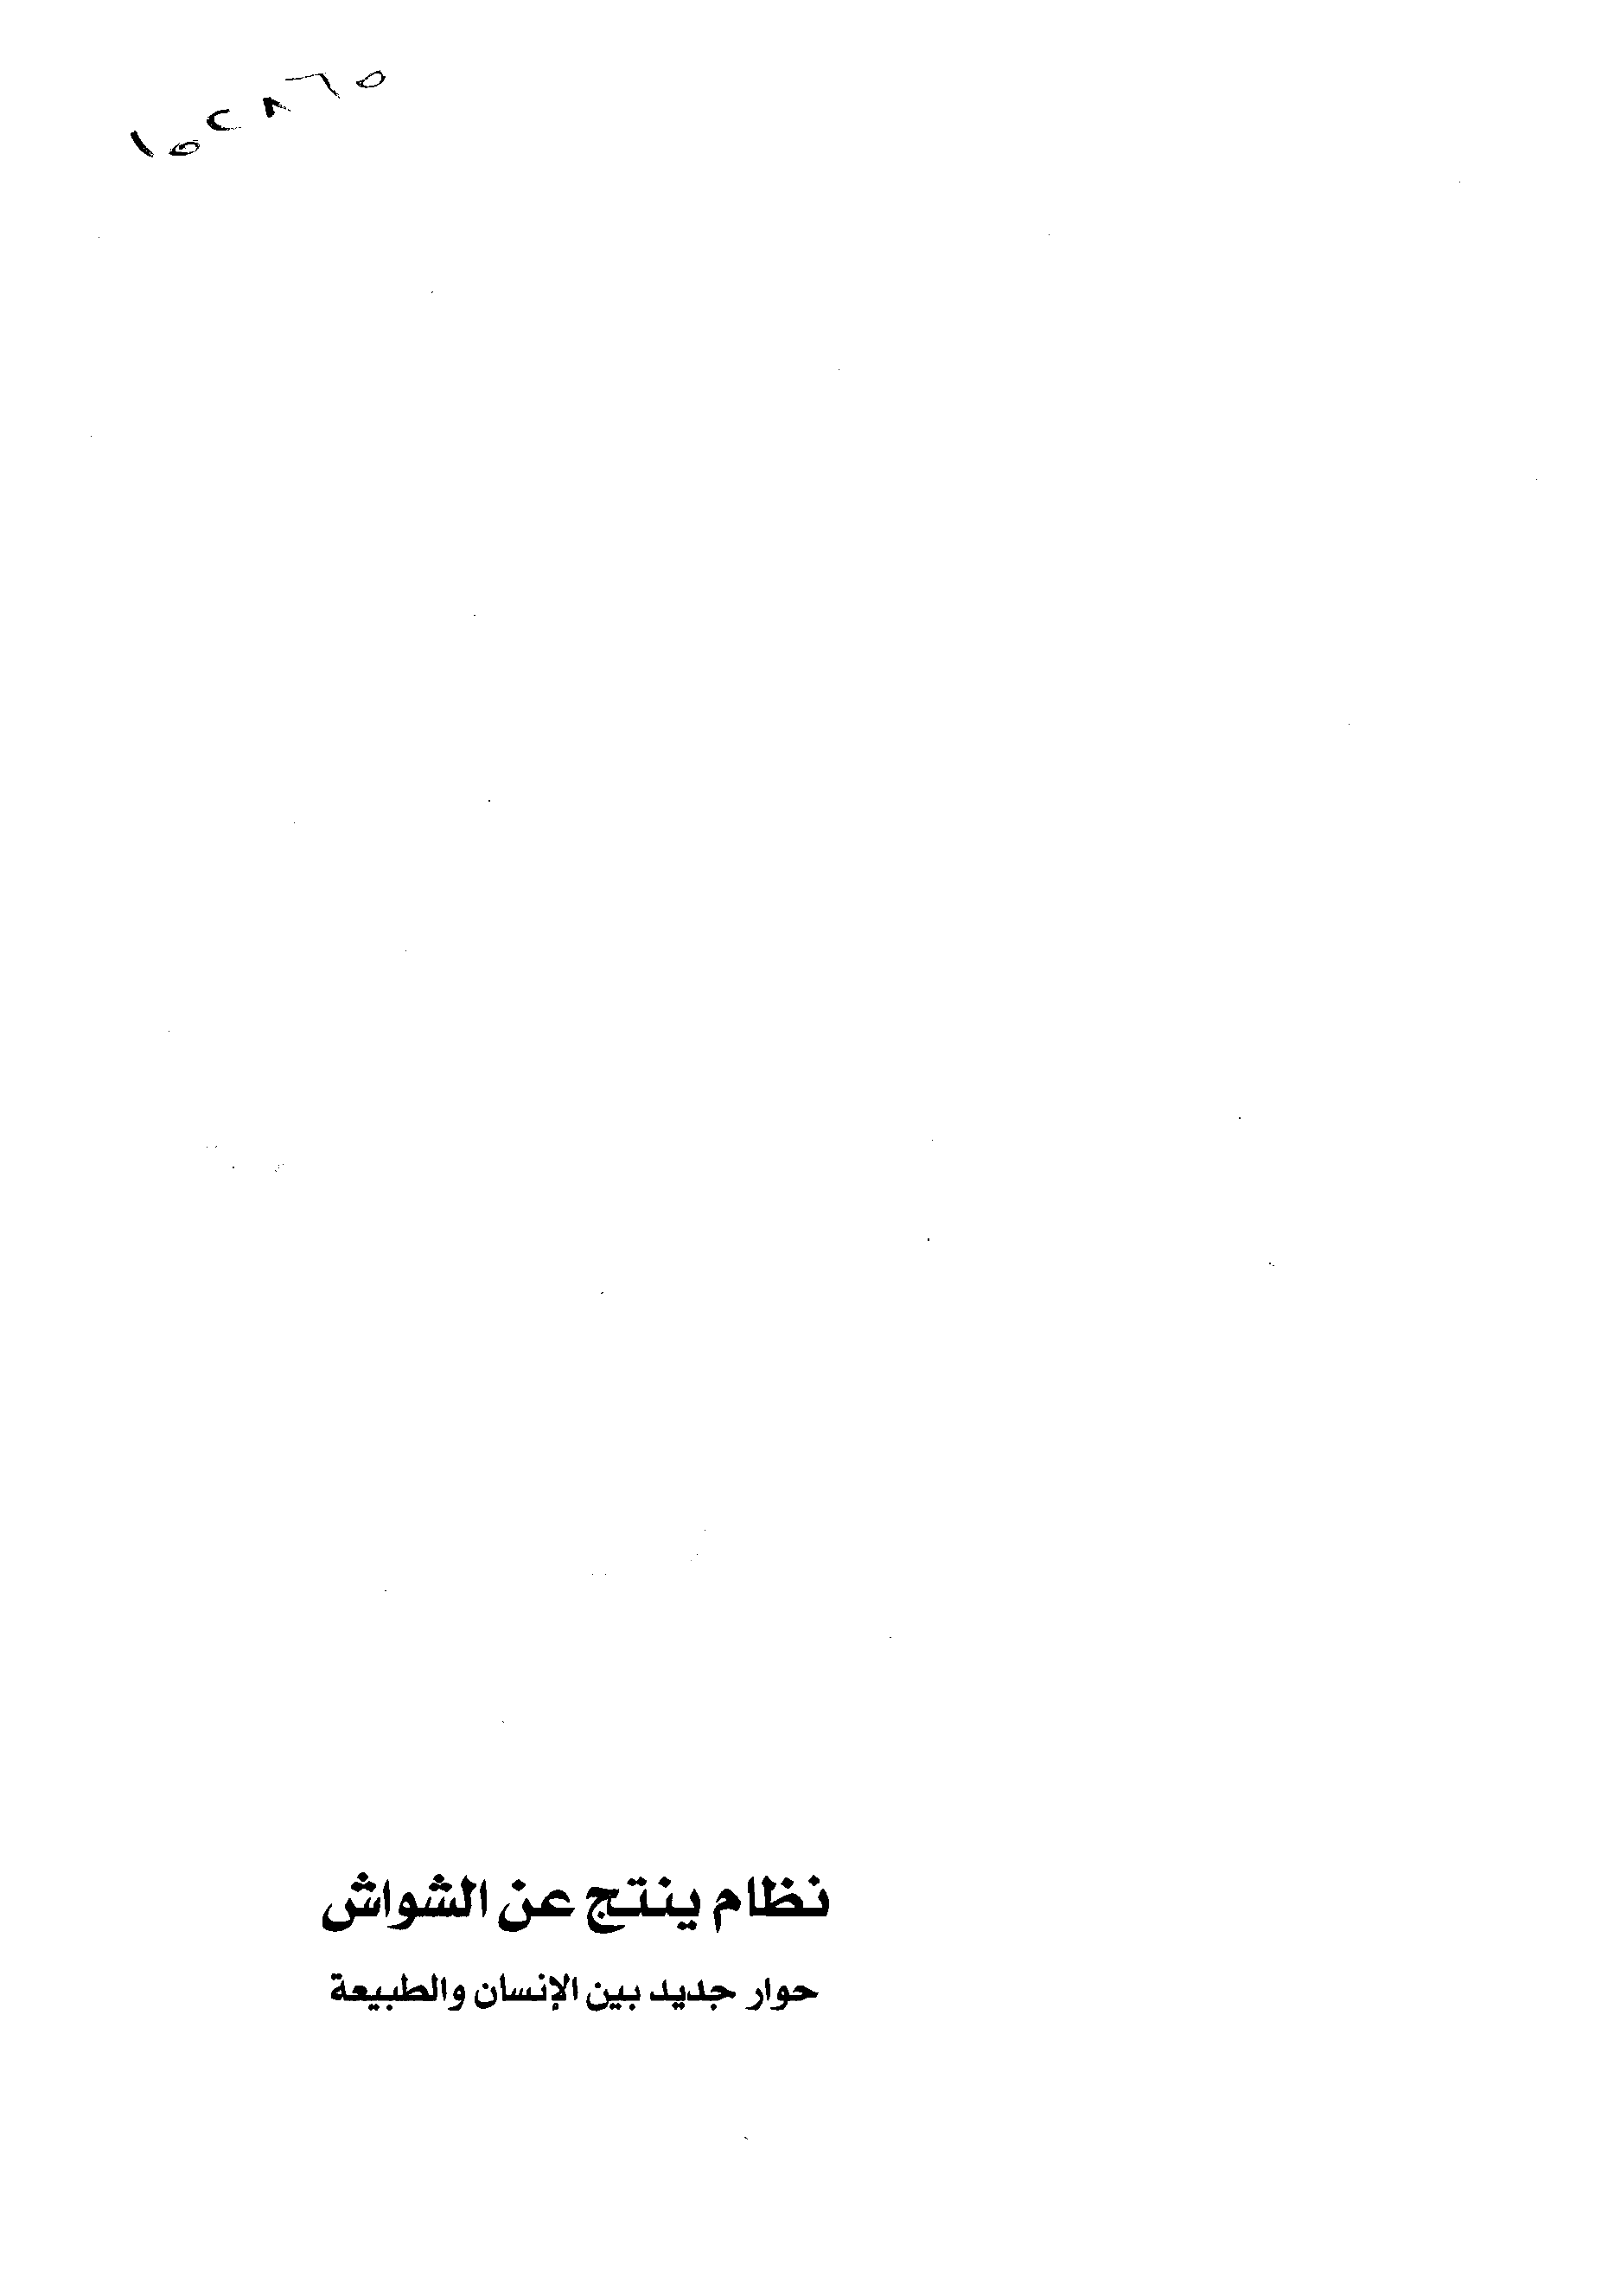 ١٥٢٨٦٥
نظام ينتج عن الشواش
حوار جديد بين الإنسان والطبيعة